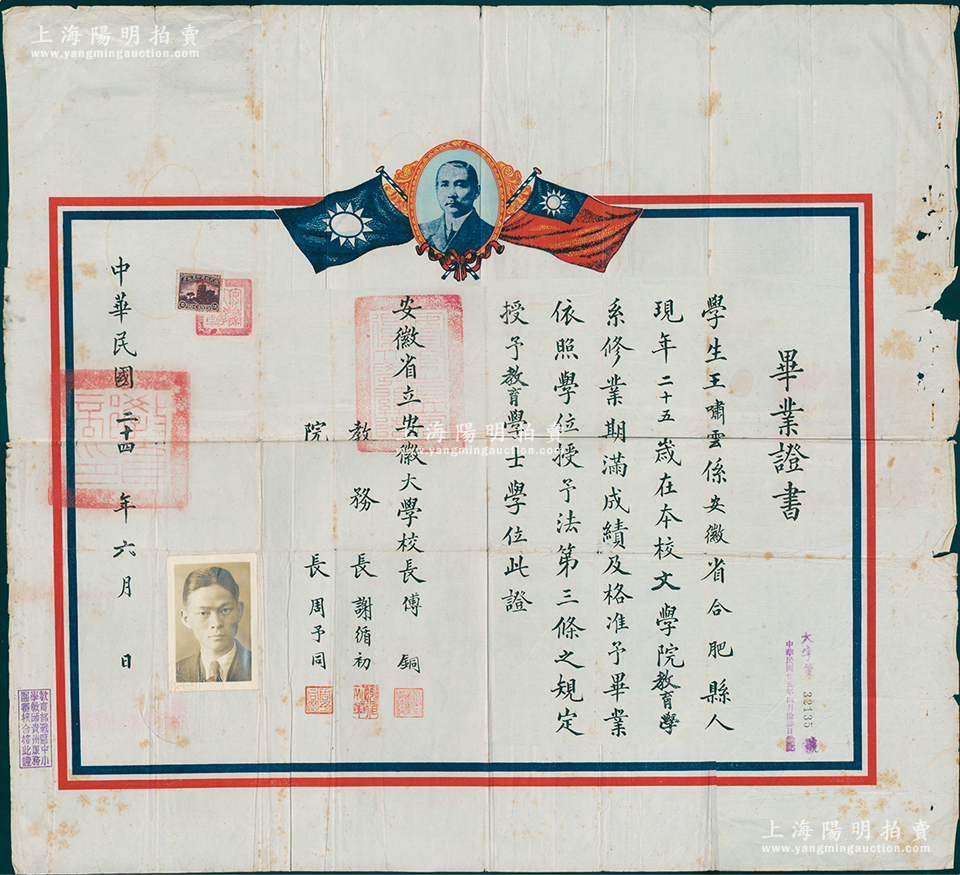 上海陽明拍賣
www.yangmingauction.com
畢業證書
學生王嘯雲係安徽省合肥縣人
現年二十五歲在本校文學院教育學
系修業期滿成績及格准予畢業
依照學位授予法第三條之規定
授予教育學士學位此證
安徽省立安徽大學校長傅銅
教務長謝循初
院長周予同
中華民國二十四年六月 日
32135
教育部戰區中小
學教師貴州服務
團審核合格此證
上海陽明拍賣
www.yangmingauction.com
上海陽明拍賣
www.yangmingauction.com